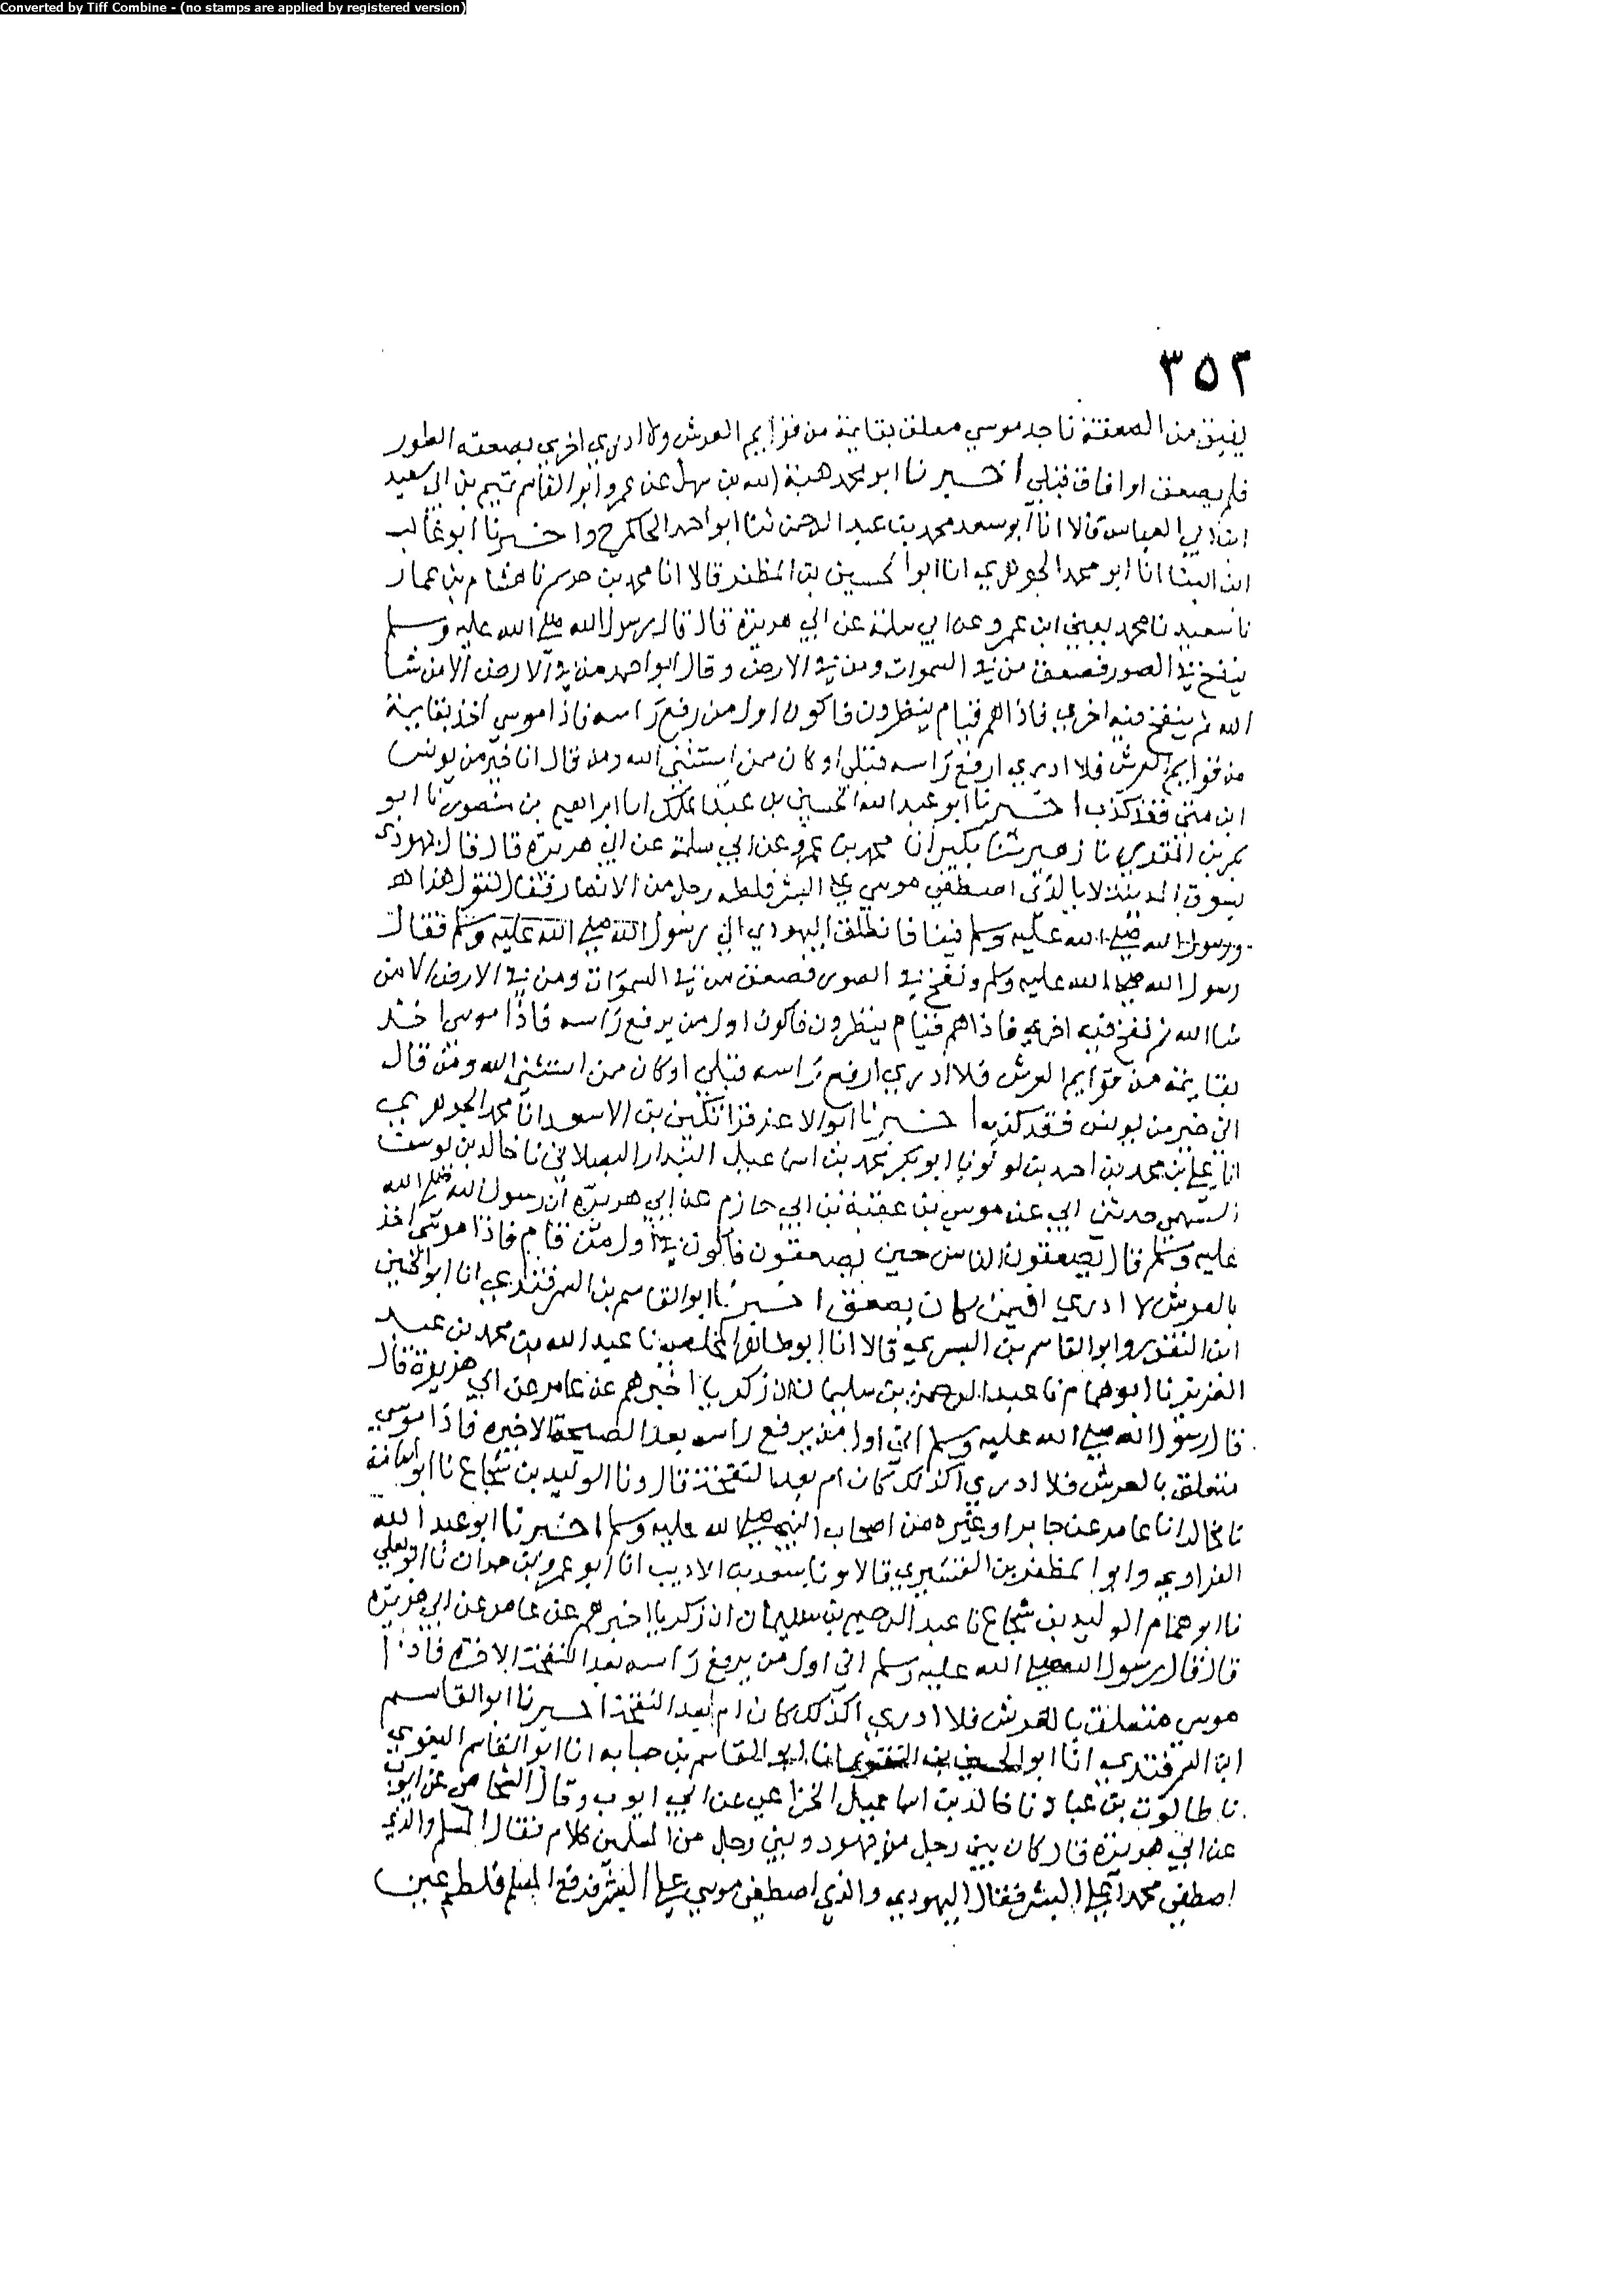 Converted by Tiff Combine - (no stamps are applied by registered version)
٣٥٢
يفيق من الصعقة فاجد موسي معلق بقايمة من قوايم العرش ولا ادري اجزي بصعقه الطور
فلم يصعق او افاق قبلي اخبرنا ابو محمد هبة الله بن سهل عن عمر وابو القاسم تميم بن ابي سعيد
ابن ابي العباس قالا انا ابو سعد محمد بن عبد الرحمن ثنا ابو احمد الحاكم ح واخبرنا ابو غالب
ابن البنا انا ابو محمد الجوهري انا ابوا لحسين بن المظفر قالا انا محمد بن حريم نا هشام بن عمار
نا سعيد نا محمد يعني ابن عمرو عن ابي سلمة عن ابي هريرة قال قال رسول الله صلى الله عليه وسلم
ينفخ في الصور فصعق من في السموات ومن في الارض وقال ابو احمد من في الارض الا من شا
الله ثم ينفخ فيه اخري فاذا هم قيام ينظرون فاكون اول من رفع راسه فاذا موسى اخذ بقايمة
من قوايم العرش فلا ادري ارفع راسه قبلي او كان ممن استثني الله ومن قال انا خير من يونس
ابن متى فقد كذب اخبرنا ابو عبد الله الحسين بن عبد الملك انا ابراهيم بن منصور نا ابو
بكر بن المقري نا زهير ثنا بكير ان محمد بن عمرو عن ابي سلمة عن ابي هريرة قال قال يهودى
بسوق المدينة لا بالذى اصطفي موسي علي البشر فلطمه رجل من الانصار فقال تقول هذا
ورسول الله صلى الله عليه وسلم فينا فانطلق اليهودي الي رسول الله صلى الله عليه وسلم فقال
رسول الله صلى الله عليه وسلم ونفخ في الصور فصعق من في السموات ومن في الارض الا من
شا الله ثم نفخ فيه اخري فاذا هم قيام ينظرون فاكون اول من يرفع راسه فاذا موسى اخذ
بقايمة من قوايم العرش فلا ادري ارفع راسه قبلي او كان ممن استثنى الله ومن قال
اني خير من يونس فقد كذب اخبرنا ابو الاعز قراتكين بن الاسعد انا محمد الجوهري
انا علي بن محمد بن احمد بن لولو نا ابو بكر محمد بن اسماعيل البندار البصلاني نا خالد بن يوسف
السمتي حدثني ابي عن موسي بن عقبة بن ابي حازم عن ابي هريرة ان رسول الله صلى الله
عليه وسلم قال يصعقون الناس حين يصعقون فاكون في اول من قام فاذا موسى اخذ
بالعرش لا ادري افيمن كان يصعق اخبرنا ابو القاسم بن السمرقندي انا ابو الحسين
ابن النقور وابو القاسم بن البسري قالا انا ابو طاهر المخلص نا عبد الله بن محمد بن عبد
العزيز نا ابو همام نا عبد الرحمن بن سليمان ان زكريا اخبرهم عن عامر عن ابي هريرة قال
قال رسول الله صلى الله عليه وسلم اني اول من يرفع راسه بعد الصيحة الاخيره فاذا موسي
متعلق بالعرش فلا ادري اكذلك كان ام بعد النفخة قال ونا الوليد بن شجاع نا ابو اسامة
نا مخالد انا عامر عن جابر او غيره من اصحاب النبي صلى الله عليه وسلم اخبرنا ابو عبد الله
الفراوي وابوا لمظفر بن القشيري قالا نا سعد به الاديب انا ابو عمرو بن حمدان نا ابو يعلي
نا ابو همام الوليد بن شجاع نا عبد الرحيم بن سليمان ان زكريا اخبرهم عن عامر عن ابي هريرة
قال قال رسول الله صلى الله عليه وسلم اني اول من يرفع راسه بعد النفخة الاخرة فاذا
موسي متعلق بالعرش فلا ادري اكذلك كان ام بعد النفخة اخبرنا ابو القاسم
ابن السمرقندي انا ابو الحسين بن النقور انا ابو القاسم بن حبابه انا ابو القاسم البغوي
نا طالوت بن عباد نا خالد بن اسماعيل الخزاعي عن ابي ايوب وقال الشحامي عن ايوب
عن ابي هريرة قال كان بين رجل من يهود وبين رجل من المسلمين كلام فقال المسلم والذي
اصطفي محمدا علي البشر فقال اليهودي والذي اصطفي موسي علي البشر فرفع المسلم فلطم عين